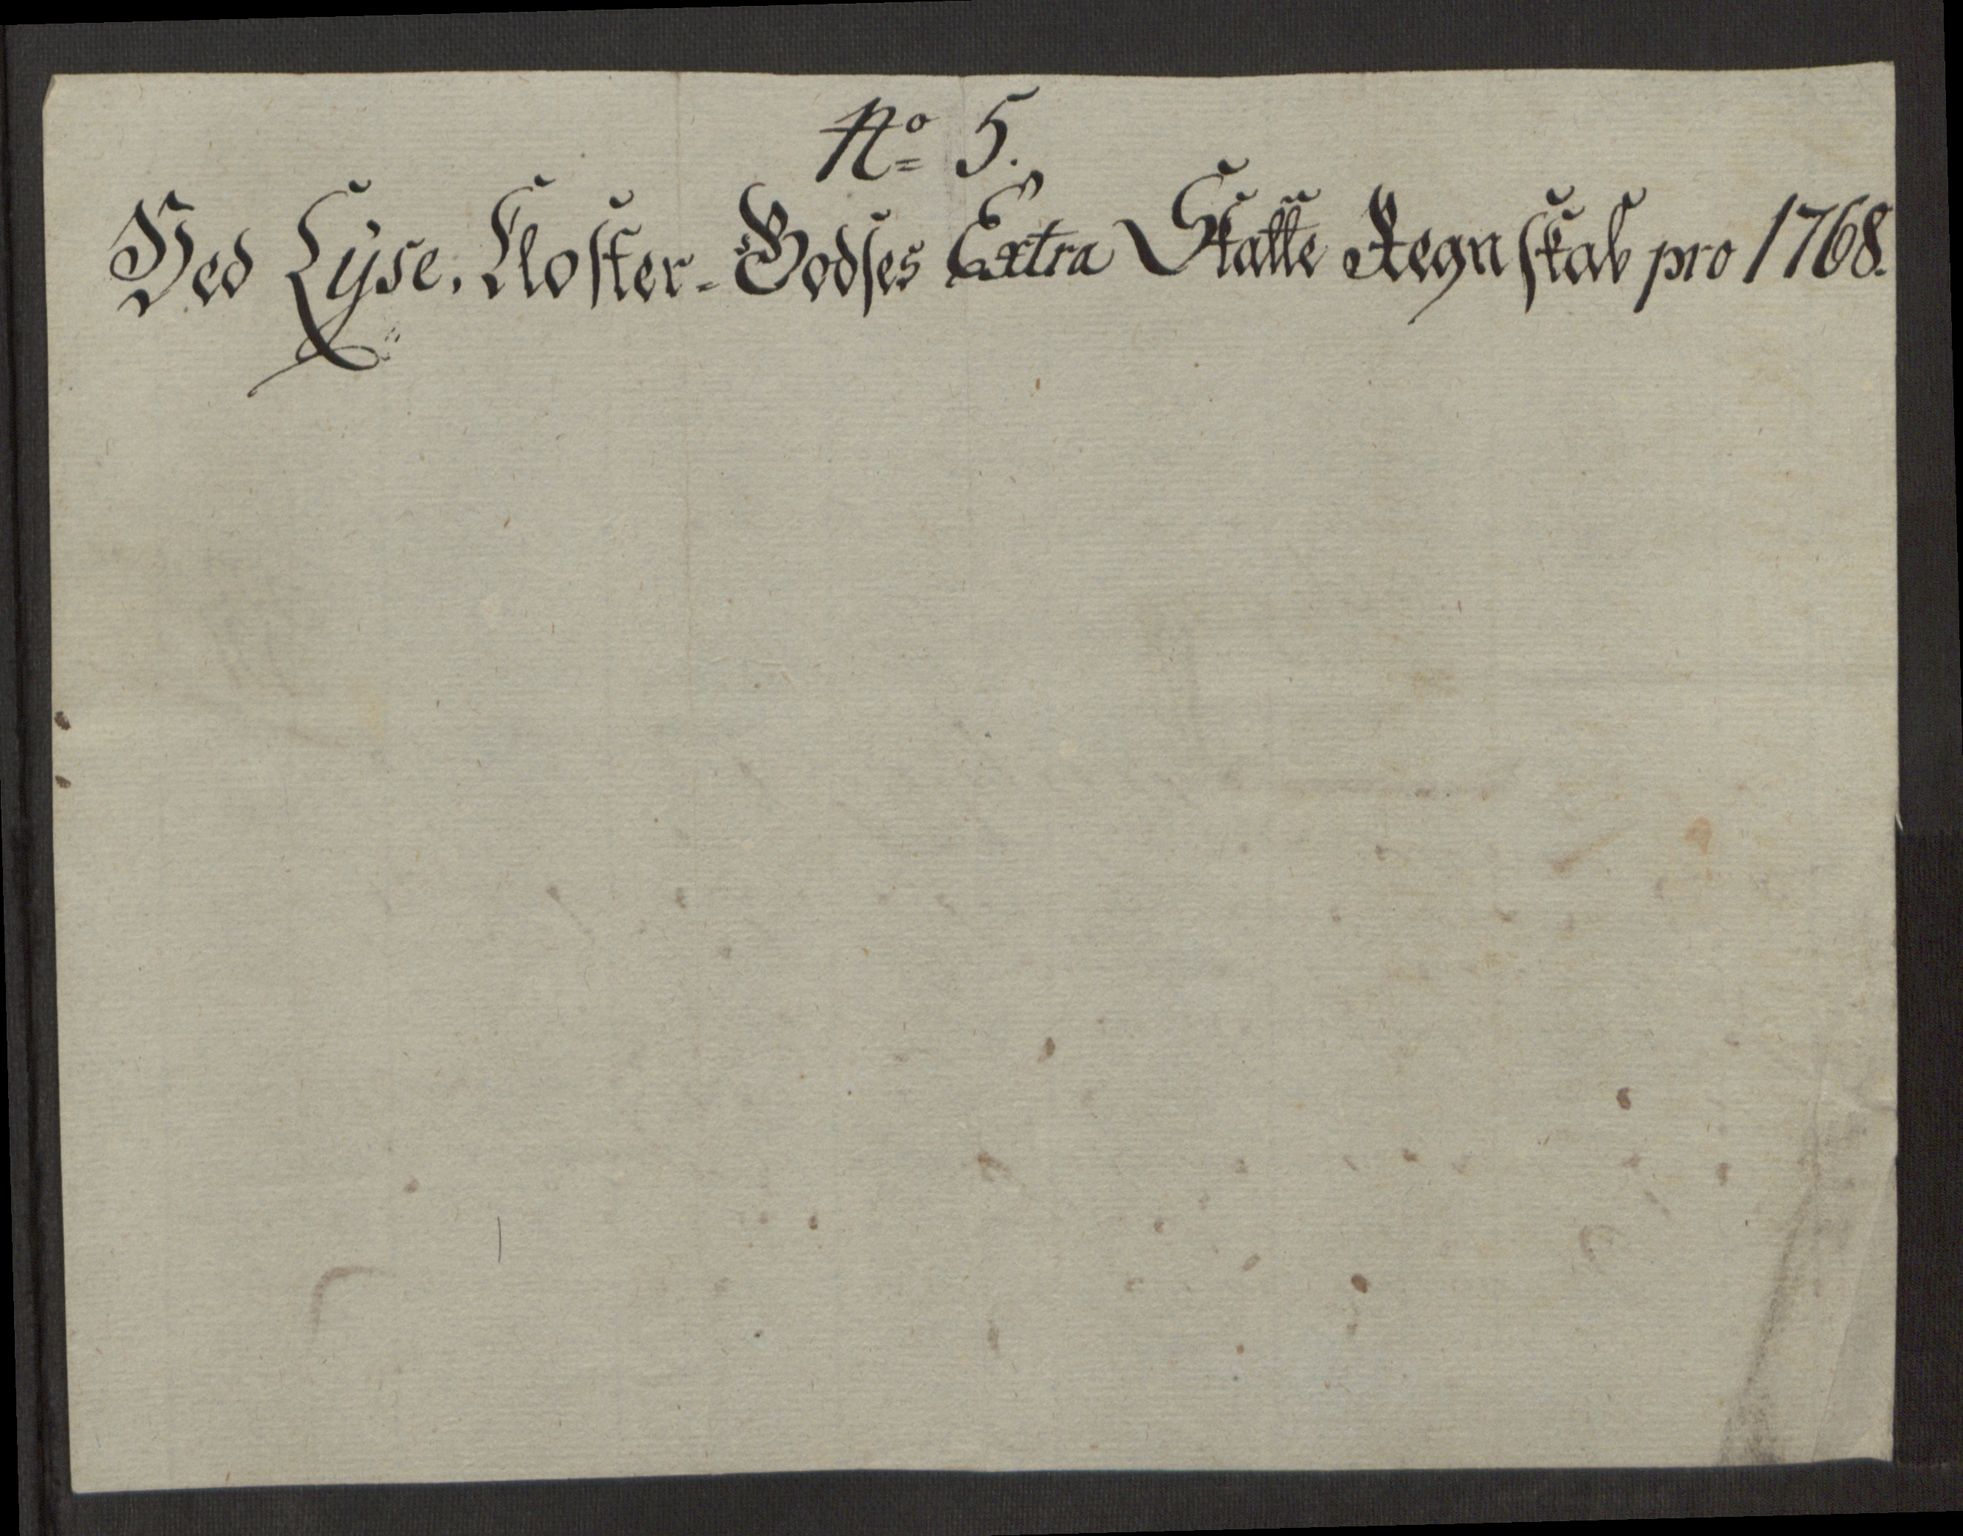 No 5.
Ved Lyse-Kloster-Godses Extra Skatte Regnskab pro 1768.